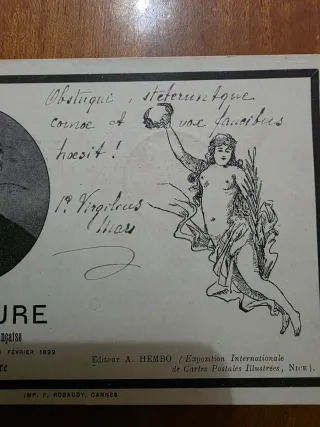 Obstupui, steteruntque
comœ et vox faucibus
hœsit!
Pˢ Virgilius
Maro
URE
nçaise
FÉVRIER 1899
re
Editeur A. HEMBO (Exposition Internationale
de Cartes Postales Illustrées, NICE).
IMP. F. ROBAUDY, CANNES